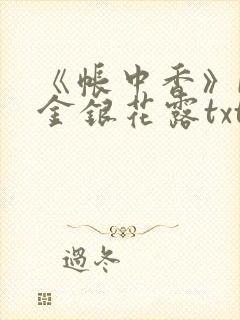 《帐中香》
金银花露txt
過冬